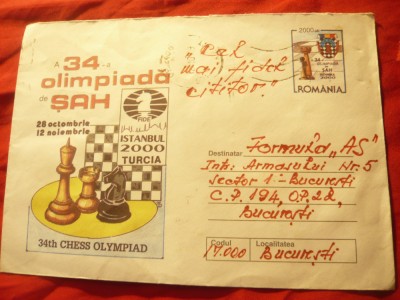 A 34-a
olimpiadă
de ŞAH
28 octombrie
12 noiembrie
FIDE
ISTANBUL
2000
TURCIA
34th CHESS OLYMPIAD
"Cel
mai fidel
cititor."
2000
34
ŞAH
ROMÂNIA
Destinatar Formula „AS"
Intr. Armasului Nr. 5
Sector 1 - Bucureşti
C.P. 194, O.P. 22,
Bucureşti
Codul Localitatea
17.000 Bucureşti